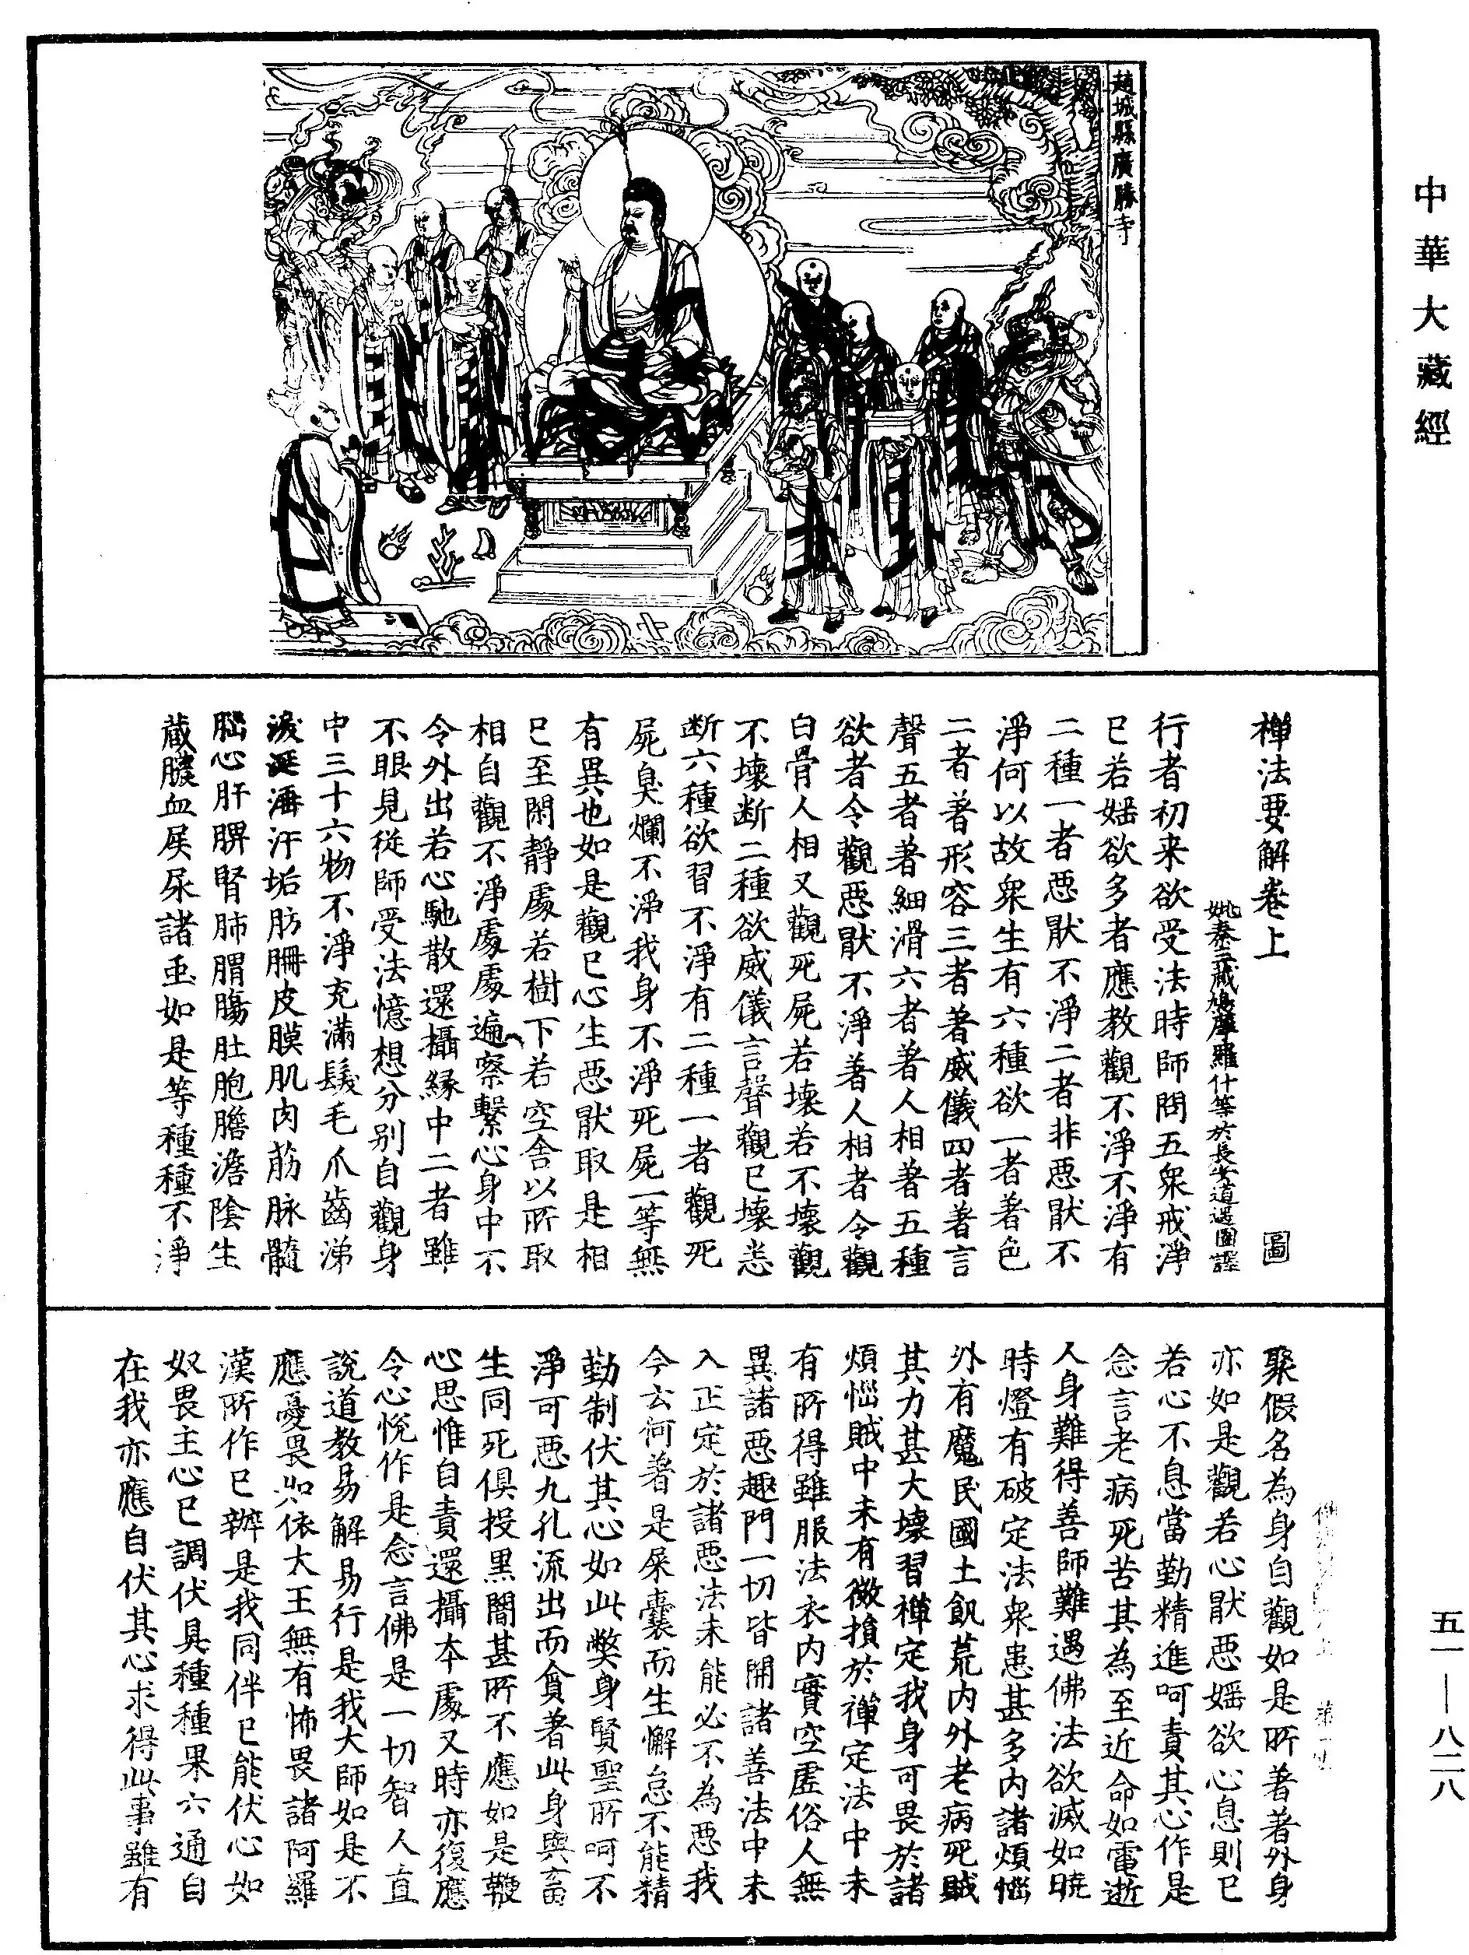 中華大藏經
趙城縣廣勝寺
禪法要解卷上 圖
姚秦三藏鳩摩羅什等於長安道遙園譯
行者初来欲受法時師問五衆戒淨
已若婬欲多者應教觀不淨不淨有
二種一者惡猒不淨二者非惡猒不
淨何以故衆生有六種欲一者著色
二者著形容三者著威儀四者著言
聲五者著細滑六者著人相著五種
欲者令觀惡猒不淨著人相者令觀
白骨人相又觀死屍若壞若不壞觀
不壞斷二種欲威儀言聲觀已壞悉
断六種欲習不淨有二種一者觀死
屍臭爛不淨我身不淨死屍一等無
有異也如是觀已心生惡猒取是相
已至閑靜處若樹下若空舍以所取
相自觀不淨處處遍察繫心身中不
令外出若心馳散還攝緣中二者雖
不眼見從師受法憶想分別自觀身
中三十六物不淨充滿髮毛爪齒涕
淚涎洟汗垢肪𦙱皮膜肌肉筋脉髓
腦心肝脾腎肺胃腸肚胞膽澹陰生
蔵膿血屎尿諸虫如是等種種不淨
聚假名為身自觀如是所著著外身
亦如是觀若心猒惡婬欲心息則已
若心不息當勤精進呵責其心作是
念言老病死苦其為至近命如電逝
人身難得善師難遇佛法欲滅如曉
時燈有破定法衆患甚多内諸煩惱
外有魔民國土飢荒内外老病死賊
其力甚大壞習禪定我身可畏於諸
煩惱賊中未有微損於禪定法中未
有所得雖服法衣内實空虛俗人無
異諸惡趣門一切皆開諸善法中未
入正定於諸惡法未能必不為惡我
今云何著是屎囊而生懈怠不能精
勤制伏其心如此弊身賢聖所呵不
淨可惡九孔流出而貪著此身與畜
生同死俱投黑闇甚所不應如是鞭
心思惟自責還攝本處又時亦復應
令心悅作是念言佛是一切智人直
說道教易解易行是我大師如是不
應憂畏如依大王無有怖畏諸阿羅
漢所作已辦是我同伴已能伏心如
奴畏主心已調伏具種種果六通自
在我亦應自伏其心求得此事雖有
五一——八二八